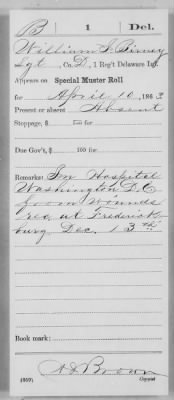 B 1 Del.
William S. Birney
Sgt, Co. D, 1 Reg't Delaware Inf.
Appears on Special Muster Roll
for April 10, 1863
Present or absent Absent
Stoppage, $ 100 for
Due Gov't, $ 100 for
Remarks: In Hospital
Washington D.C
from Wounds
rec. at Fredericks
burg Dec. 13th
Book mark:
Brown
(369) Copyist